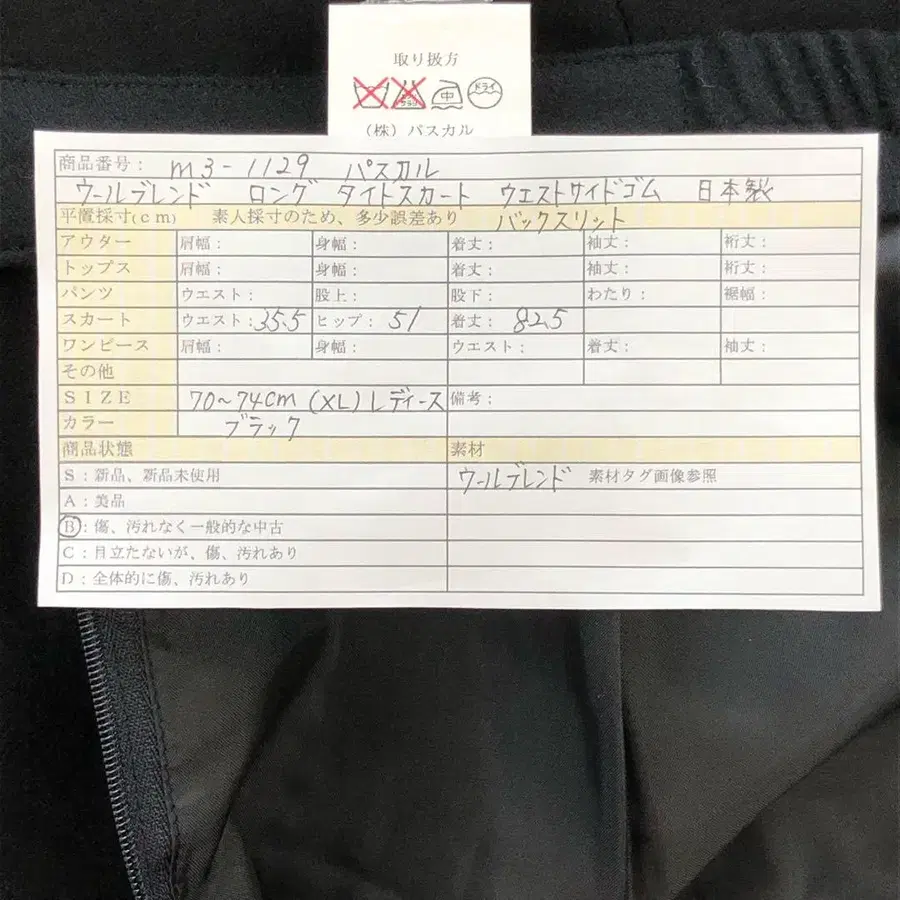 取り扱方
中 ドライ
(株) パスカル
商品番号: m3-1129 パスカル
ウールブレンド ロング タイトスカート ウエストサイドゴム 日本製
平置採寸(cm) 素人採寸のため、多少誤差あり バックスリット
アウター 肩幅: 身幅: 着丈: 袖丈: 裄丈:
トップス 肩幅: 身幅: 着丈: 袖丈: 裄丈:
パンツ ウエスト: 股上: 股下: わたり: 裾幅:
スカート ウエスト:35.5 ヒップ: 51 着丈: 82.5
ワンピース 肩幅: 身幅: ウエスト: 着丈: 袖丈:
その他
SIZE 70~74cm (XL) レディース 備考:
カラー ブラック
商品状態 素材
S:新品、新品未使用 ウールブレンド 素材タグ画像参照
A:美品
B:傷、汚れなく一般的な中古
C:目立たないが、傷、汚れあり
D:全体的に傷、汚れあり